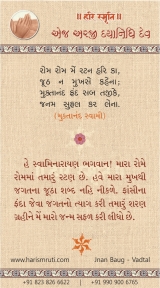 ॥ હરિ સ્મૃતિ ॥
એજ અરજી દયાનિધિ દેવ
રોમ રોમ મેં રટન હરિ કા,
જૂઠ ન મુખસે કહેના;
મુક્તાનંદ કંદ શબ તજીકે,
જનમ સુફલ કર લેના.
(મુક્તાનંદ સ્વામી)
હે સ્વામિનારાયણ ભગવાન! મારા રોમે
રોમમાં તમારું રટણ છે. હવે મારા મુખથી
જગતના જૂઠા શબ્દ નહિ નીકળે. ફાંસીના
ફંદા જેવા જગતનો ત્યાગ કરી તમારું શરણ
ગ્રહીને મેં મારો જન્મ સફળ કરી લીધો છે.
www.harismruti.com
Jnan Baug - Vadtal
+91 823 826 6622
+91 990 900 6765